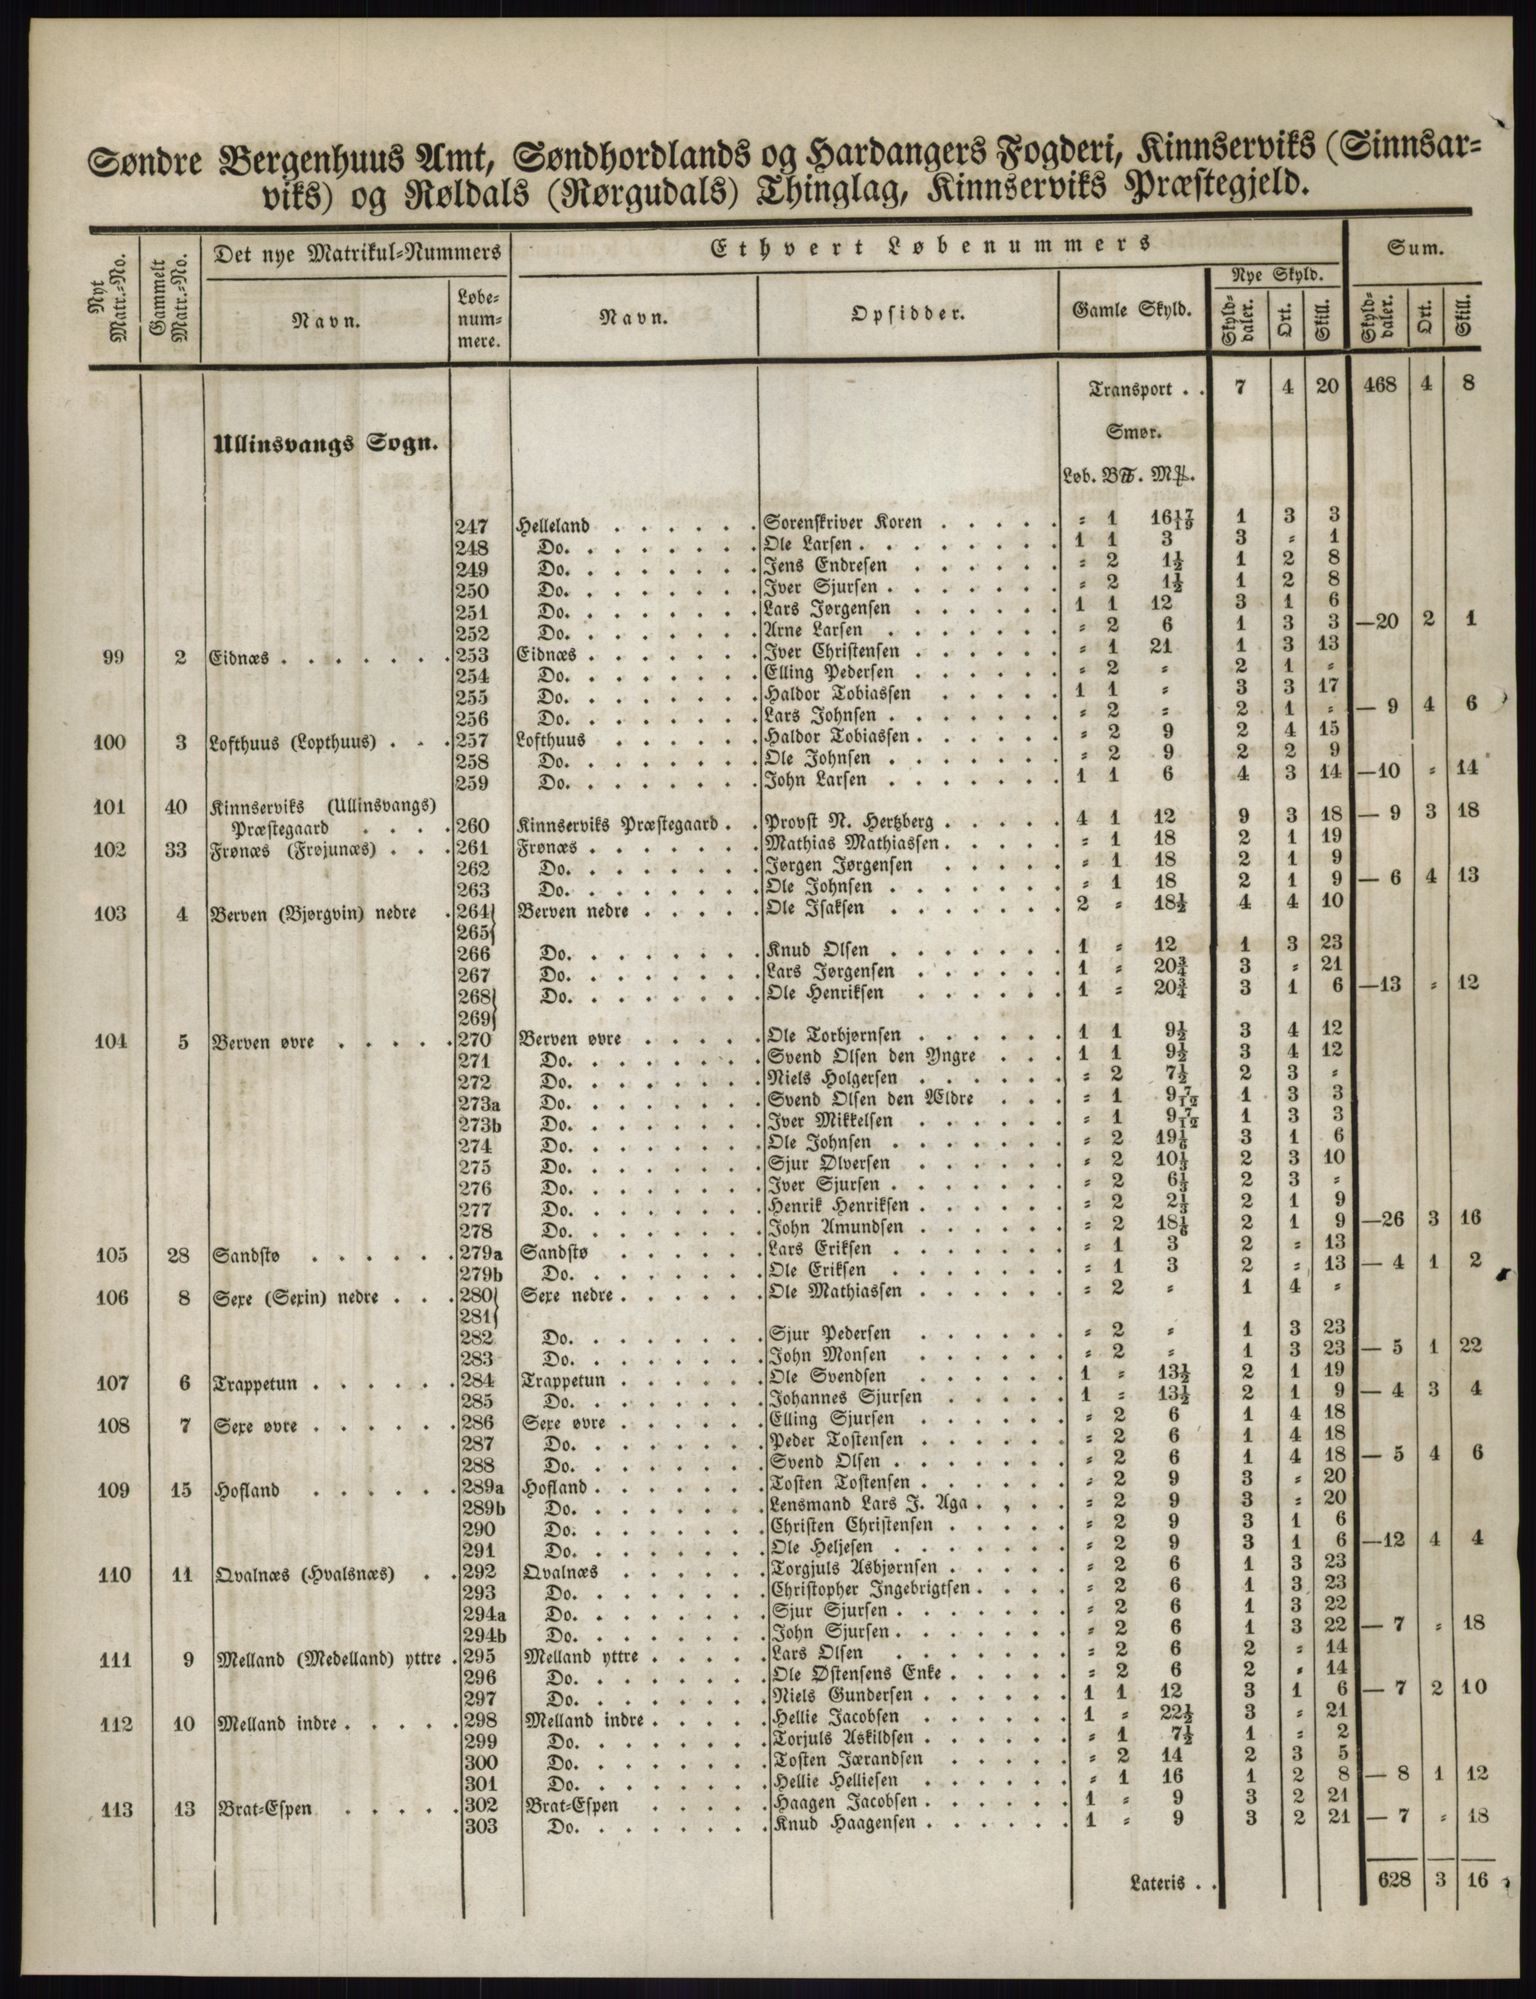 Søndre Bergenhuus Amt, Søndhordlands og Hardangers Fogderi, Kinnserviks (Sinnsar-
viks) og Røldals (Rørgudals) Thinglag, Kinnserviks Præstegjeld.
Nyt Matr.-No. Gammelt Matr.-No. Det nye Matrikul-Nummers Ethvert Løbenummers Sum.
Navn. Løbe-nummere. Navn. Opsidder. Gamle Skyld. Nye Skyld. Skyld-daler. Ort. Skill. Skyld-daler. Ort. Skill.
Transport . . 7 4 20 468 4 8
Ullinsvangs Sogn. Smør.
Løb. B℔. M℔.
247 Helleland . . . . . . Sorenskriver Koren . . . . . = 1 16 17/19 1 3 3
248 Do. . . . . . . . Ole Larsen . . . . . . . . 1 1 3 3 = 1
249 Do. . . . . . . . Jens Endresen . . . . . . = 2 1½ 1 2 8
250 Do. . . . . . . . Iver Sjursen . . . . . . . = 2 1½ 1 2 8
251 Do. . . . . . . . Lars Jørgensen . . . . . . 1 1 12 3 1 6
252 Do. . . . . . . . Arne Larsen . . . . . . . = 2 6 1 3 3 —20 2 1
99 2 Eidnæs . . . . . . . 253 Eidnæs . . . . . . . Iver Christensen . . . . . . = 1 21 1 3 13
254 Do. . . . . . . . Elling Pedersen . . . . . . = 2 = 2 1 =
255 Do. . . . . . . . Haldor Tobiassen . . . . . 1 1 = 3 3 17
256 Do. . . . . . . . Lars Johnsen . . . . . . . = 2 = 2 1 = — 9 4 6
100 3 Lofthuus (Lopthuus) . . . 257 Lofthuus . . . . . . Haldor Tobiassen . . . . . . = 2 9 2 4 15
258 Do. . . . . . . . Ole Johnsen . . . . . . . = 2 9 2 2 9
259 Do. . . . . . . . John Larsen . . . . . . . 1 1 6 4 3 14 —10 = 14
101 40 Kinnserviks (Ullinsvangs)
Præstegaard . . . . 260 Kinnserviks Præstegaard . . Provst N. Hertzberg . . . . . 4 1 12 9 3 18 — 9 3 18
102 33 Frønæs (Frøjunæs) . . . 261 Frønæs . . . . . . . Mathias Mathiassen . . . . . = 1 18 2 1 19
262 Do. . . . . . . . Jørgen Jørgensen . . . . . = 1 18 2 1 9
263 Do. . . . . . . . Ole Johnsen . . . . . . . = 1 18 2 1 9 — 6 4 13
103 4 Berven (Bjørgvin) nedre . 264} Berven nedre . . . . . Ole Isaksen . . . . . . . 2 = 18½ 4 4 10
265}
266 Do. . . . . . . . Knud Olsen . . . . . . . 1 = 12 1 3 23
267 Do. . . . . . . . Lars Jørgensen . . . . . . 1 = 20¾ 3 = 21
268} Do. . . . . . . . Ole Henriksen . . . . . . 1 = 20¾ 3 1 6 —13 = 12
269}
104 5 Berven øvre . . . . . 270 Berven øvre . . . . . Ole Torbjørnsen . . . . . . 1 1 9½ 3 4 12
271 Do. . . . . . . . Svend Olsen den Yngre . . . 1 1 9½ 3 4 12
272 Do. . . . . . . . Niels Holgersen . . . . . . = 2 7½ 2 3 =
273a Do. . . . . . . . Svend Olsen den Ældre . . . = 1 9 7/12 1 3 3
273b Do. . . . . . . . Iver Mikkelsen . . . . . . = 1 9 7/12 1 3 3
274 Do. . . . . . . . Ole Johnsen . . . . . . . = 2 19⅙ 3 1 6
275 Do. . . . . . . . Sjur Olversen . . . . . . = 2 10⅓ 2 3 10
276 Do. . . . . . . . Iver Sjursen . . . . . . . = 2 6⅓ 2 3 =
277 Do. . . . . . . . Henrik Henriksen . . . . . . = 2 2⅓ 2 1 9
278 Do. . . . . . . . John Amundsen . . . . . . = 2 18⅙ 2 1 9 —26 3 16
105 28 Sandstø . . . . . . 279a Sandstø . . . . . . Lars Eriksen . . . . . . . = 1 3 2 = 13
279b Do. . . . . . . . Ole Eriksen . . . . . . . = 1 3 2 = 13 — 4 1 2
106 8 Sexe (Sexin) nedre . . . 280} Sexe nedre . . . . . . Ole Mathiassen . . . . . . = 2 = 1 4 =
281}
282 Do. . . . . . . . Sjur Pedersen . . . . . . = 2 = 1 3 23
283 Do. . . . . . . . John Monsen . . . . . . = 2 = 1 3 23 — 5 1 22
107 6 Trappetun . . . . . . 284 Trappetun . . . . . . Ole Svendsen . . . . . . 1 = 13½ 2 1 19
285 Do. . . . . . . . Johannes Sjursen . . . . . 1 = 13½ 2 1 9 — 4 3 4
108 7 Sexe øvre . . . . . . 286 Sexe øvre . . . . . . Elling Sjursen . . . . . . = 2 6 1 4 18
287 Do. . . . . . . . Peder Tostensen . . . . . . = 2 6 1 4 18
288 Do. . . . . . . . Svend Olsen . . . . . . . = 2 6 1 4 18 — 5 4 6
109 15 Hofland . . . . . . 289a Hofland . . . . . . . Tosten Tostensen . . . . . . = 2 9 3 = 20
289b Do. . . . . . . . Lensmand Lars J. Aga . . . . = 2 9 3 = 20
290 Do. . . . . . . . Christen Christensen . . . . . = 2 9 3 1 6
291 Do. . . . . . . . Ole Heljesen . . . . . . . = 2 9 3 1 6 —12 4 4
110 11 Qvalnæs (Hvalsnæs) . . 292 Qvalnæs . . . . . . Torgjuls Asbjørnsen . . . . . = 2 6 1 3 23
293 Do. . . . . . . . Christopher Ingebrigtsen . . . . = 2 6 1 3 23
294a Do. . . . . . . . Sjur Sjursen . . . . . . . = 2 6 1 3 22
294b Do. . . . . . . . John Sjursen . . . . . . . = 2 6 1 3 22 — 7 = 18
111 9 Melland (Medelland) yttre . 295 Melland yttre . . . . . Lars Olsen . . . . . . . = 2 6 2 = 14
296 Do. . . . . . . . Ole Østensens Enke . . . . . = 2 6 2 = 14
297 Do. . . . . . . . Niels Gundersen . . . . . . 1 1 12 3 1 6 — 7 2 10
112 10 Melland indre . . . . . 298 Melland indre . . . . . Hellie Jacobsen . . . . . . 1 = 22½ 3 = 21
299 Do. . . . . . . . Torjuls Askildsen . . . . . . = 1 7½ 1 = 2
300 Do. . . . . . . . Tosten Jærandsen . . . . . = 2 14 2 3 5
301 Do. . . . . . . . Hellie Helliesen . . . . . . = 1 16 1 2 8 — 8 1 12
113 13 Brat-Espen . . . . . 302 Brat-Espen . . . . . Haagen Jacobsen . . . . . . 1 = 9 3 2 21
303 Do. . . . . . . . Knud Haagensen . . . . . . 1 = 9 3 2 21 — 7 = 18
Lateris . . 628 3 16